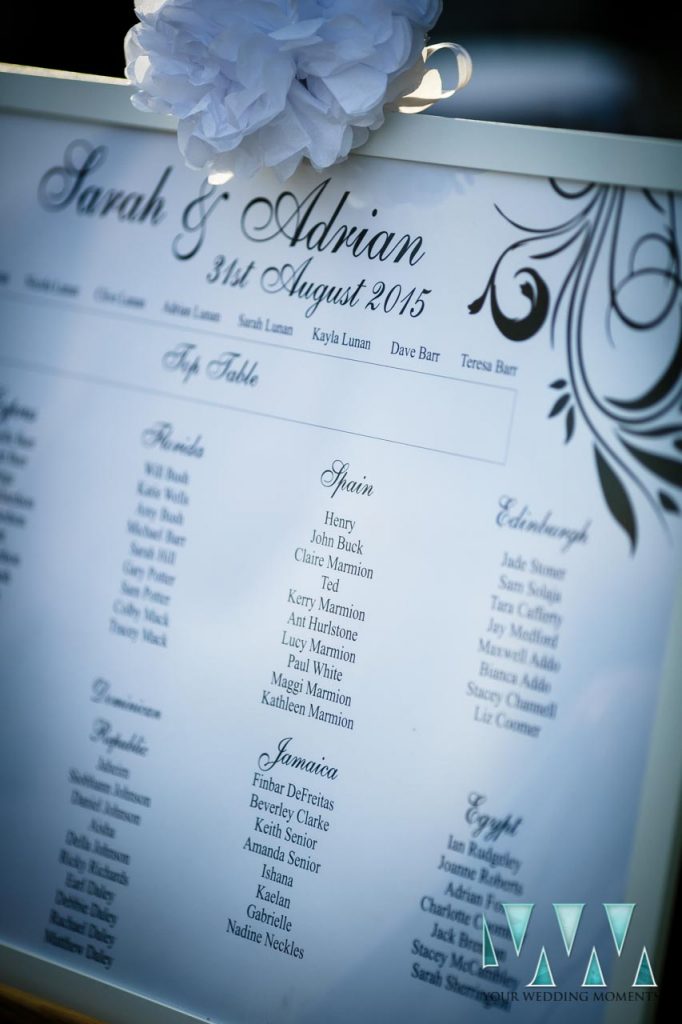 Sarah & Adrian
31st August 2015
Clive Lunan Adrian Lunan Sarah Lunan Kayla Lunan Dave Barr Teresa Barr
Top Table
Florida
Will Bush
Katie Wells
Amy Bush
Michael Barr
Sarah Hill
Gary Potter
Sam Potter
Colby Mack
Tracey Mack
Spain
Henry
John Buck
Claire Marmion
Ted
Kerry Marmion
Ant Hurlstone
Lucy Marmion
Paul White
Maggi Marmion
Kathleen Marmion
Edinburgh
Jade Stoner
Sam Solaja
Tara Cafferty
Jay Medford
Maxwell Addo
Bianca Addo
Stacey Channell
Liz Coomer
Dominican
Republic
Siobhann Johnson
Daniel Johnson
Aisha
Della Johnson
Ricky Richards
Earl Daley
Debbie Daley
Rachael Daley
Matthew Daley
Jamaica
Finbar DeFreitas
Beverley Clarke
Keith Senior
Amanda Senior
Ishana
Kaelan
Gabrielle
Nadine Neckles
Egypt
Ian Rudgeley
Joanne Roberts
Adrian
Charlotte
Jack
Stacey
Sarah
YOUR WEDDING MOMENTS